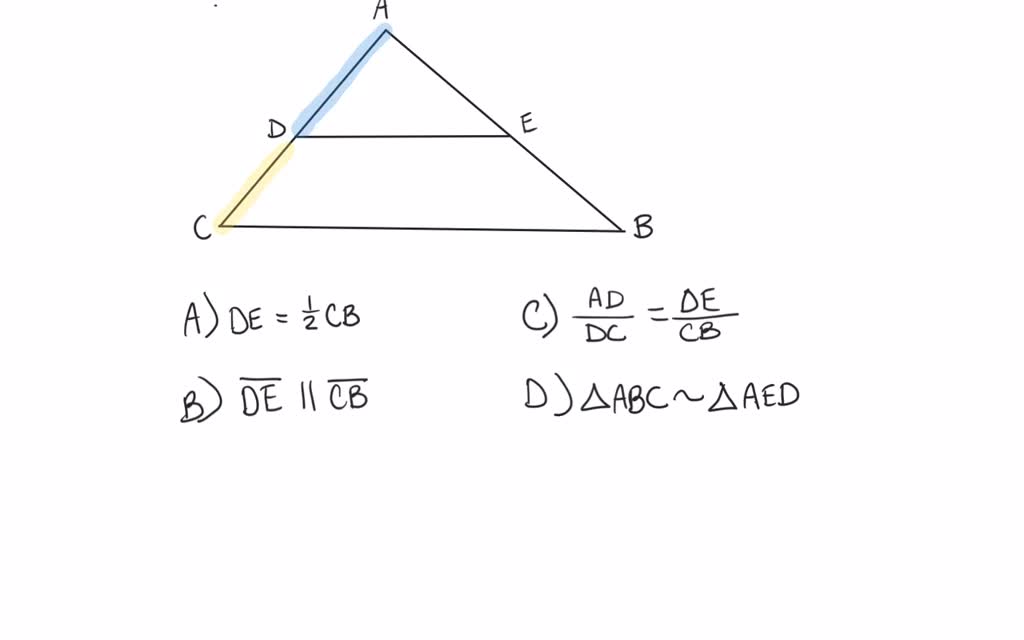 A
D
E
C
B
A) DE = 1/2 CB
C) AD/DC = DE/CB
B) D̅E̅ || C̅B̅
D) △ABC ~ △AED